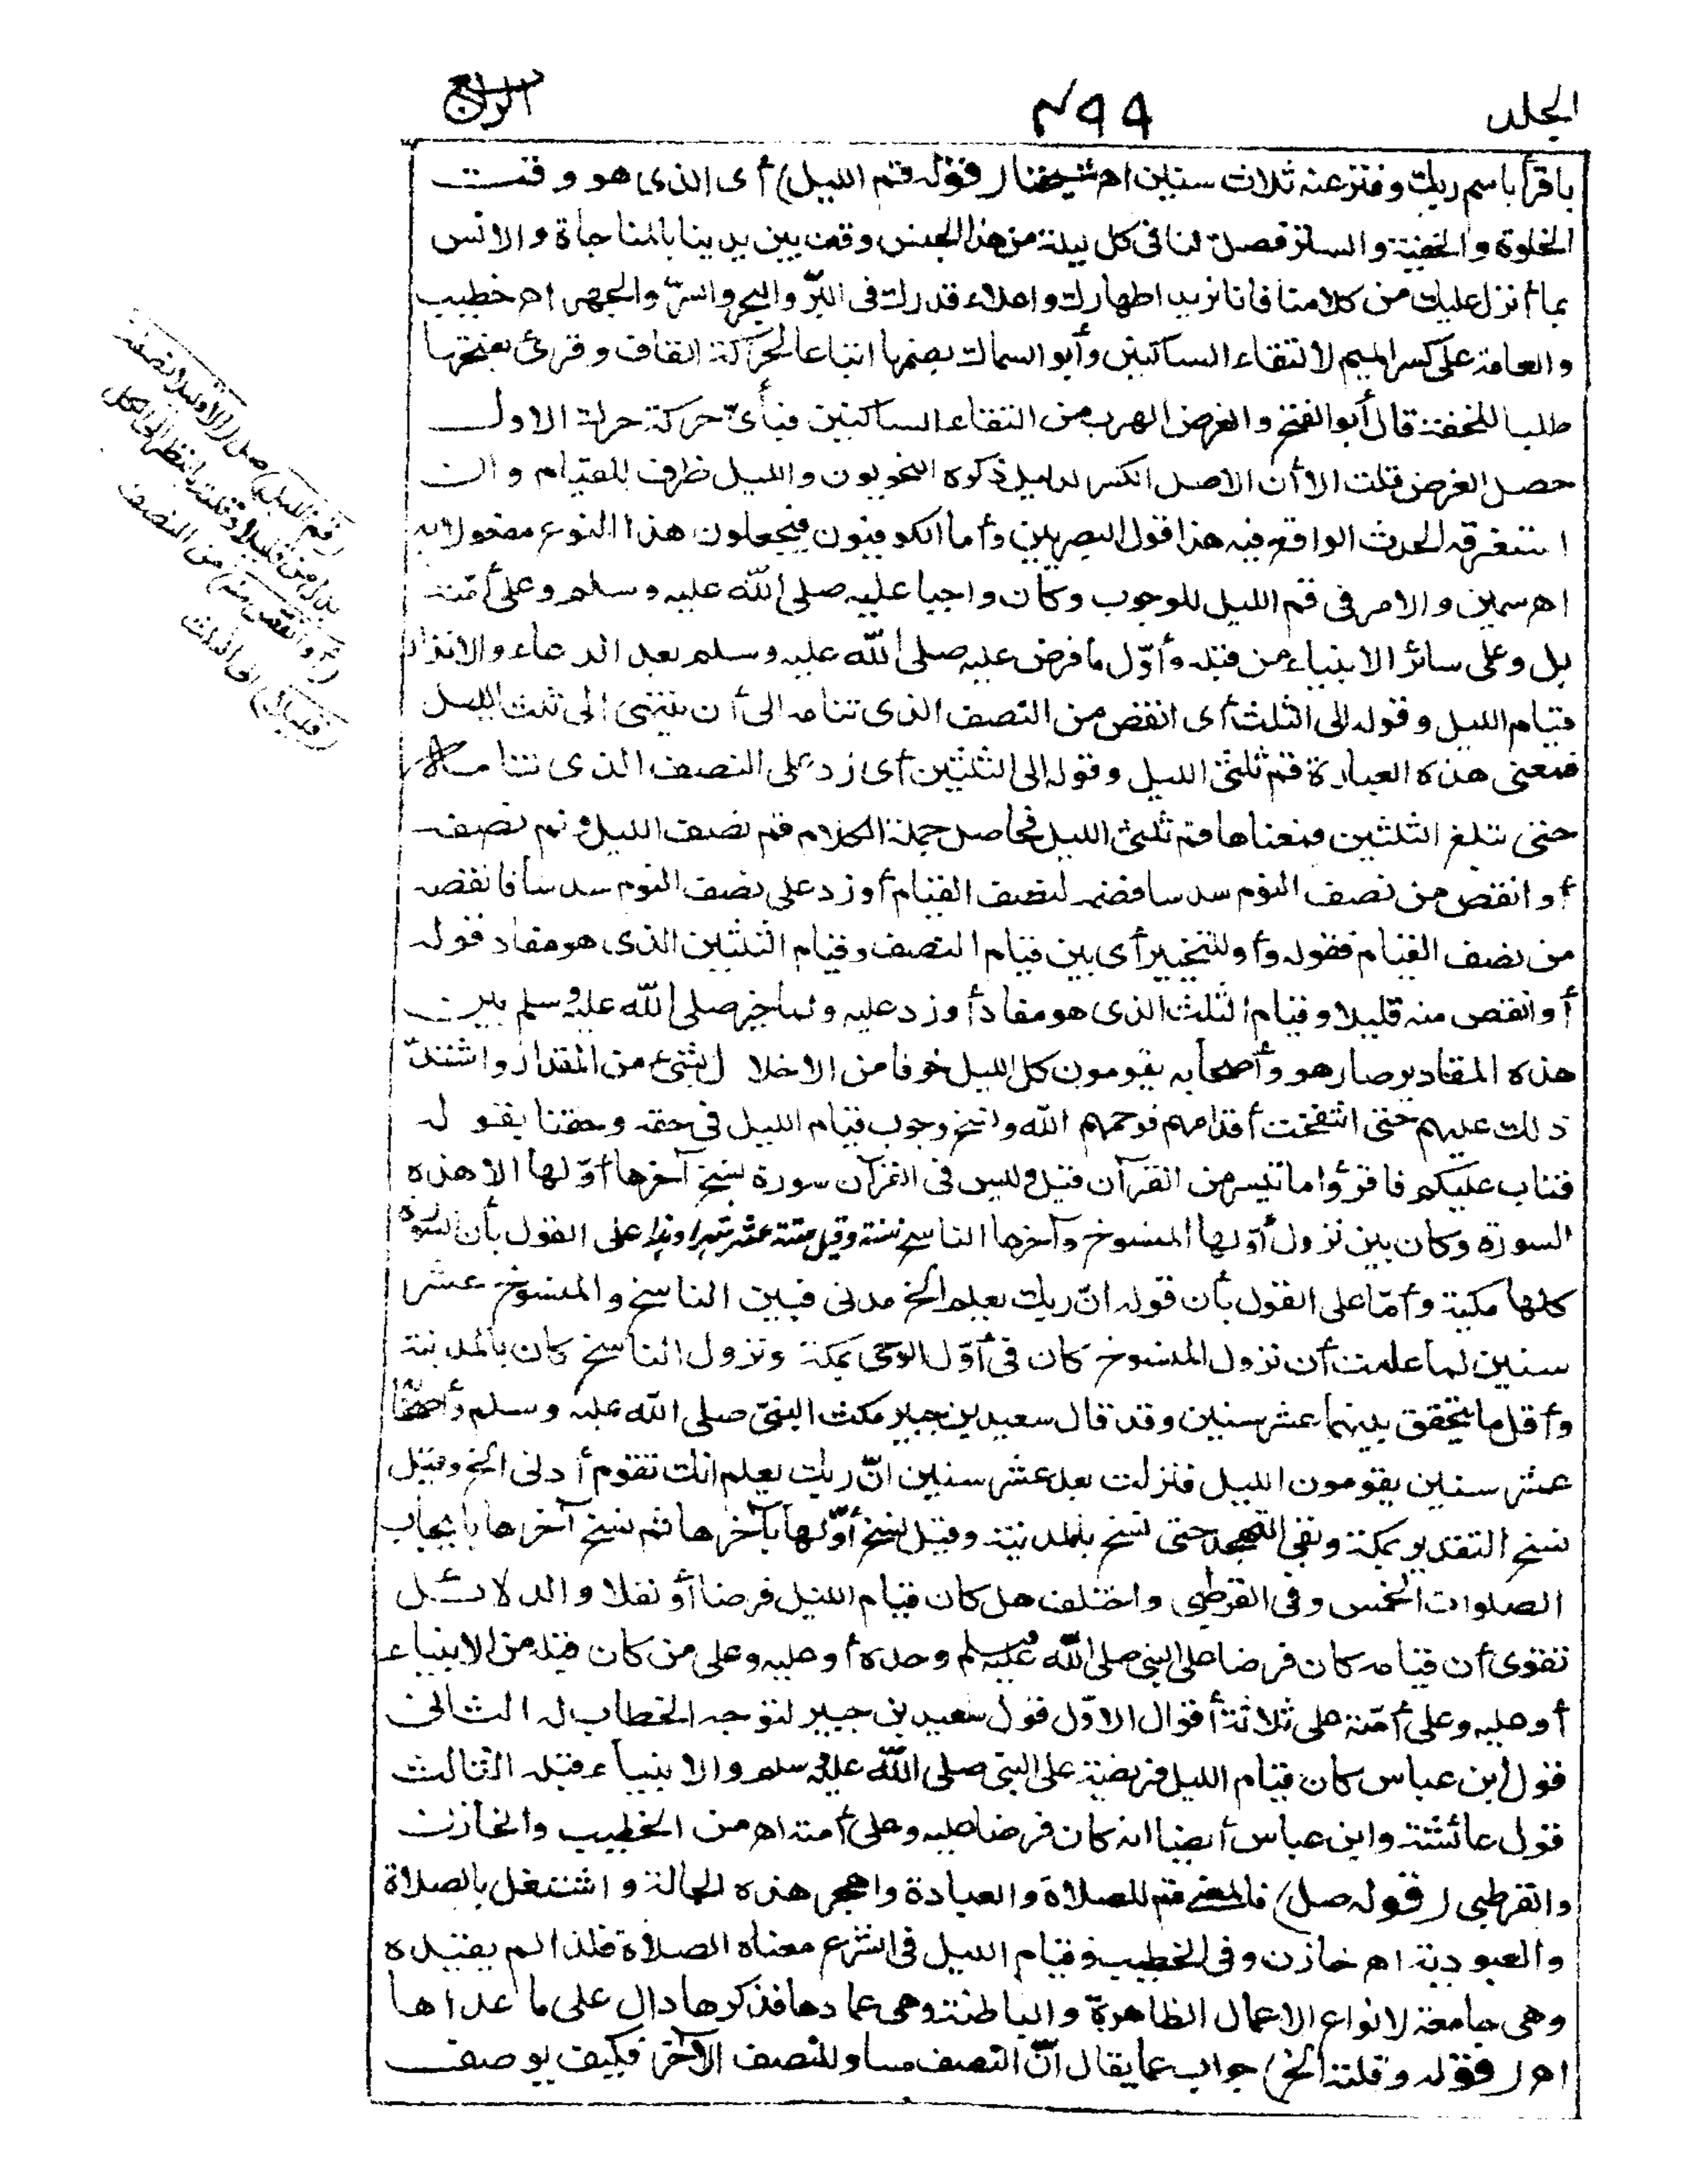 الجلد ٤٩٩ الرابع
باقرأ باسم ربك وفتر عنه ثلاث سنين اه شيخنا (قوله قم الليل) أى الذى هو وقت
الخلوة والخفية والستر فصل لنا فى كل ليلة من هذا الجنس وقف بين يدينا بالمناجاة والانس
بما أنزل عليك من كلامنا فانا نريد اظهارك واعلاء قدرك فى البرّ والبحر والسرّ والجهر اه خطيب
والعامة على كسر الميم لالتقاء الساكنين وأبو السماك بضمها اتباعا لحركة القاف وقرئ بفتحها
طلبا للخفة قال أبو الفتح والغرض الهرب من التقاء الساكنين فبأىّ حركة حرك الاول
حصل الغرض قلت الا أن الاصل الكسر لدليل ذكره النحويون والليل ظرف للقيام وان
استغرقه الحدث الواقع فيه هذا قول البصريين وأما الكوفيون فيجعلون هذا النوع مفعولا به
اه سمين والامر فى قم الليل للوجوب وكان واجبا عليه صلى الله عليه وسلم وعلى أمّته
بل وعلى سائر الانبياء من قبله وأوّل ما فرض عليه صلى الله عليه وسلم بعد الدعاء والانذار
قيام الليل وقوله الى الثلث أى انقص من النصف الذى تنامه الى أن ينتهى الى ثلث الليل
فمعنى هذه العبارة قم ثلثى الليل وقوله الى الثلثين أى زد على النصف الذى تنامه
حتى تبلغ الثلثين فمعناها قم ثلث الليل فحاصل جملة الكلام قم نصف الليل ونم نصف
أو انقص من نصف النوم سدسا فضمه لنصف القيام أو زد على نصف النوم سدسا فانقصه
من نصف القيام فقوله وأو للتخيير أى بين قيام النصف وقيام الثلثين الذى هو مفاد قوله
أو انقص منه قليلا وقيام الثلث الذى هو مفاد أو زد عليه ولما خير صلى الله عليه وسلم بين
هذه المقادير صار هو وأصحابه يقومون كل الليل خوفا من الاخلال بشئ من المقدار واشتدّ
ذلك عليهم حتى انتفخت أقدامهم فرحمهم الله ونسخ وجوب قيام الليل فى حقه وحقنا بقوله
فتاب عليكم فاقرؤا ما تيسر من القرآن قيل وليس فى القرآن سورة نسخ آخرها أوّلها الا هذه
السورة وكان بين نزول أوّلها المنسوخ وآخرها الناسخ سنة وقيل ستة عشر شهرا وهذا على القول بأن السورة
كلها مكية وأمّا على القول بأن قوله انّ ربك يعلم الخ مدنى فبين الناسخ والمنسوخ عشر
سنين لما علمت أن نزول المنسوخ كان فى أوّل الوحى بمكة ونزول الناسخ كان بالمدينة
وأقل ما يتحقق بينهما عشر سنين وقد قال سعيد بن جبير مكث النبىّ صلى الله عليه وسلم وأصحابه
عشر سنين يقومون الليل فنزلت بعد عشر سنين انّ ربك يعلم انك تقوم أدنى الخ وقيل
نسخ التقدير بمكة وبقى التهجد حتى نسخ بالمدينة وقيل نسخ أوّلها بآخرها ثم نسخ آخرها بايجاب
الصلوات الخمس وفى القرطبى واختلف هل كان قيام الليل فرضا أو نفلا والدلائل
تقوى أن قيامه كان فرضا على النبى صلى الله عليه وسلم وحده أو عليه وعلى من كان قبله من الانبياء
أو عليه وعلى أمّته على ثلاثة أقوال الاوّل قول سعيد بن جبير لتوجه الخطاب له الثانى
قول ابن عباس كان قيام الليل فريضة على النبى صلى الله عليه وسلم والانبياء قبله الثالث
قول عائشة وابن عباس أيضا انه كان فرضا عليه وعلى أمته اه من الخطيب والخازن
والقرطبى (قوله صل) فالمعنى قم للصلاة والعبادة واهجر هذه الحالة واشتغل بالصلاة
والعبودية اه خازن وفى الخطيب وقيام الليل فى الشرع معناه الصلاة فلذا لم يقيده
وهى جامعة لانواع الاعمال الظاهرة والباطنة وهى عمادها فذكرها دال على ما عداها
اه (قوله وقلته الخ) جواب عما يقال انّ النصف مساو للنصف الآخر فكيف يوصف
(قم الليل) صل (الا قليلا نصفه)
بدل من قليلا وقلته بالنظر الى الكل
(أو انقص منه) من النصف
(قليلا) الى الثلث